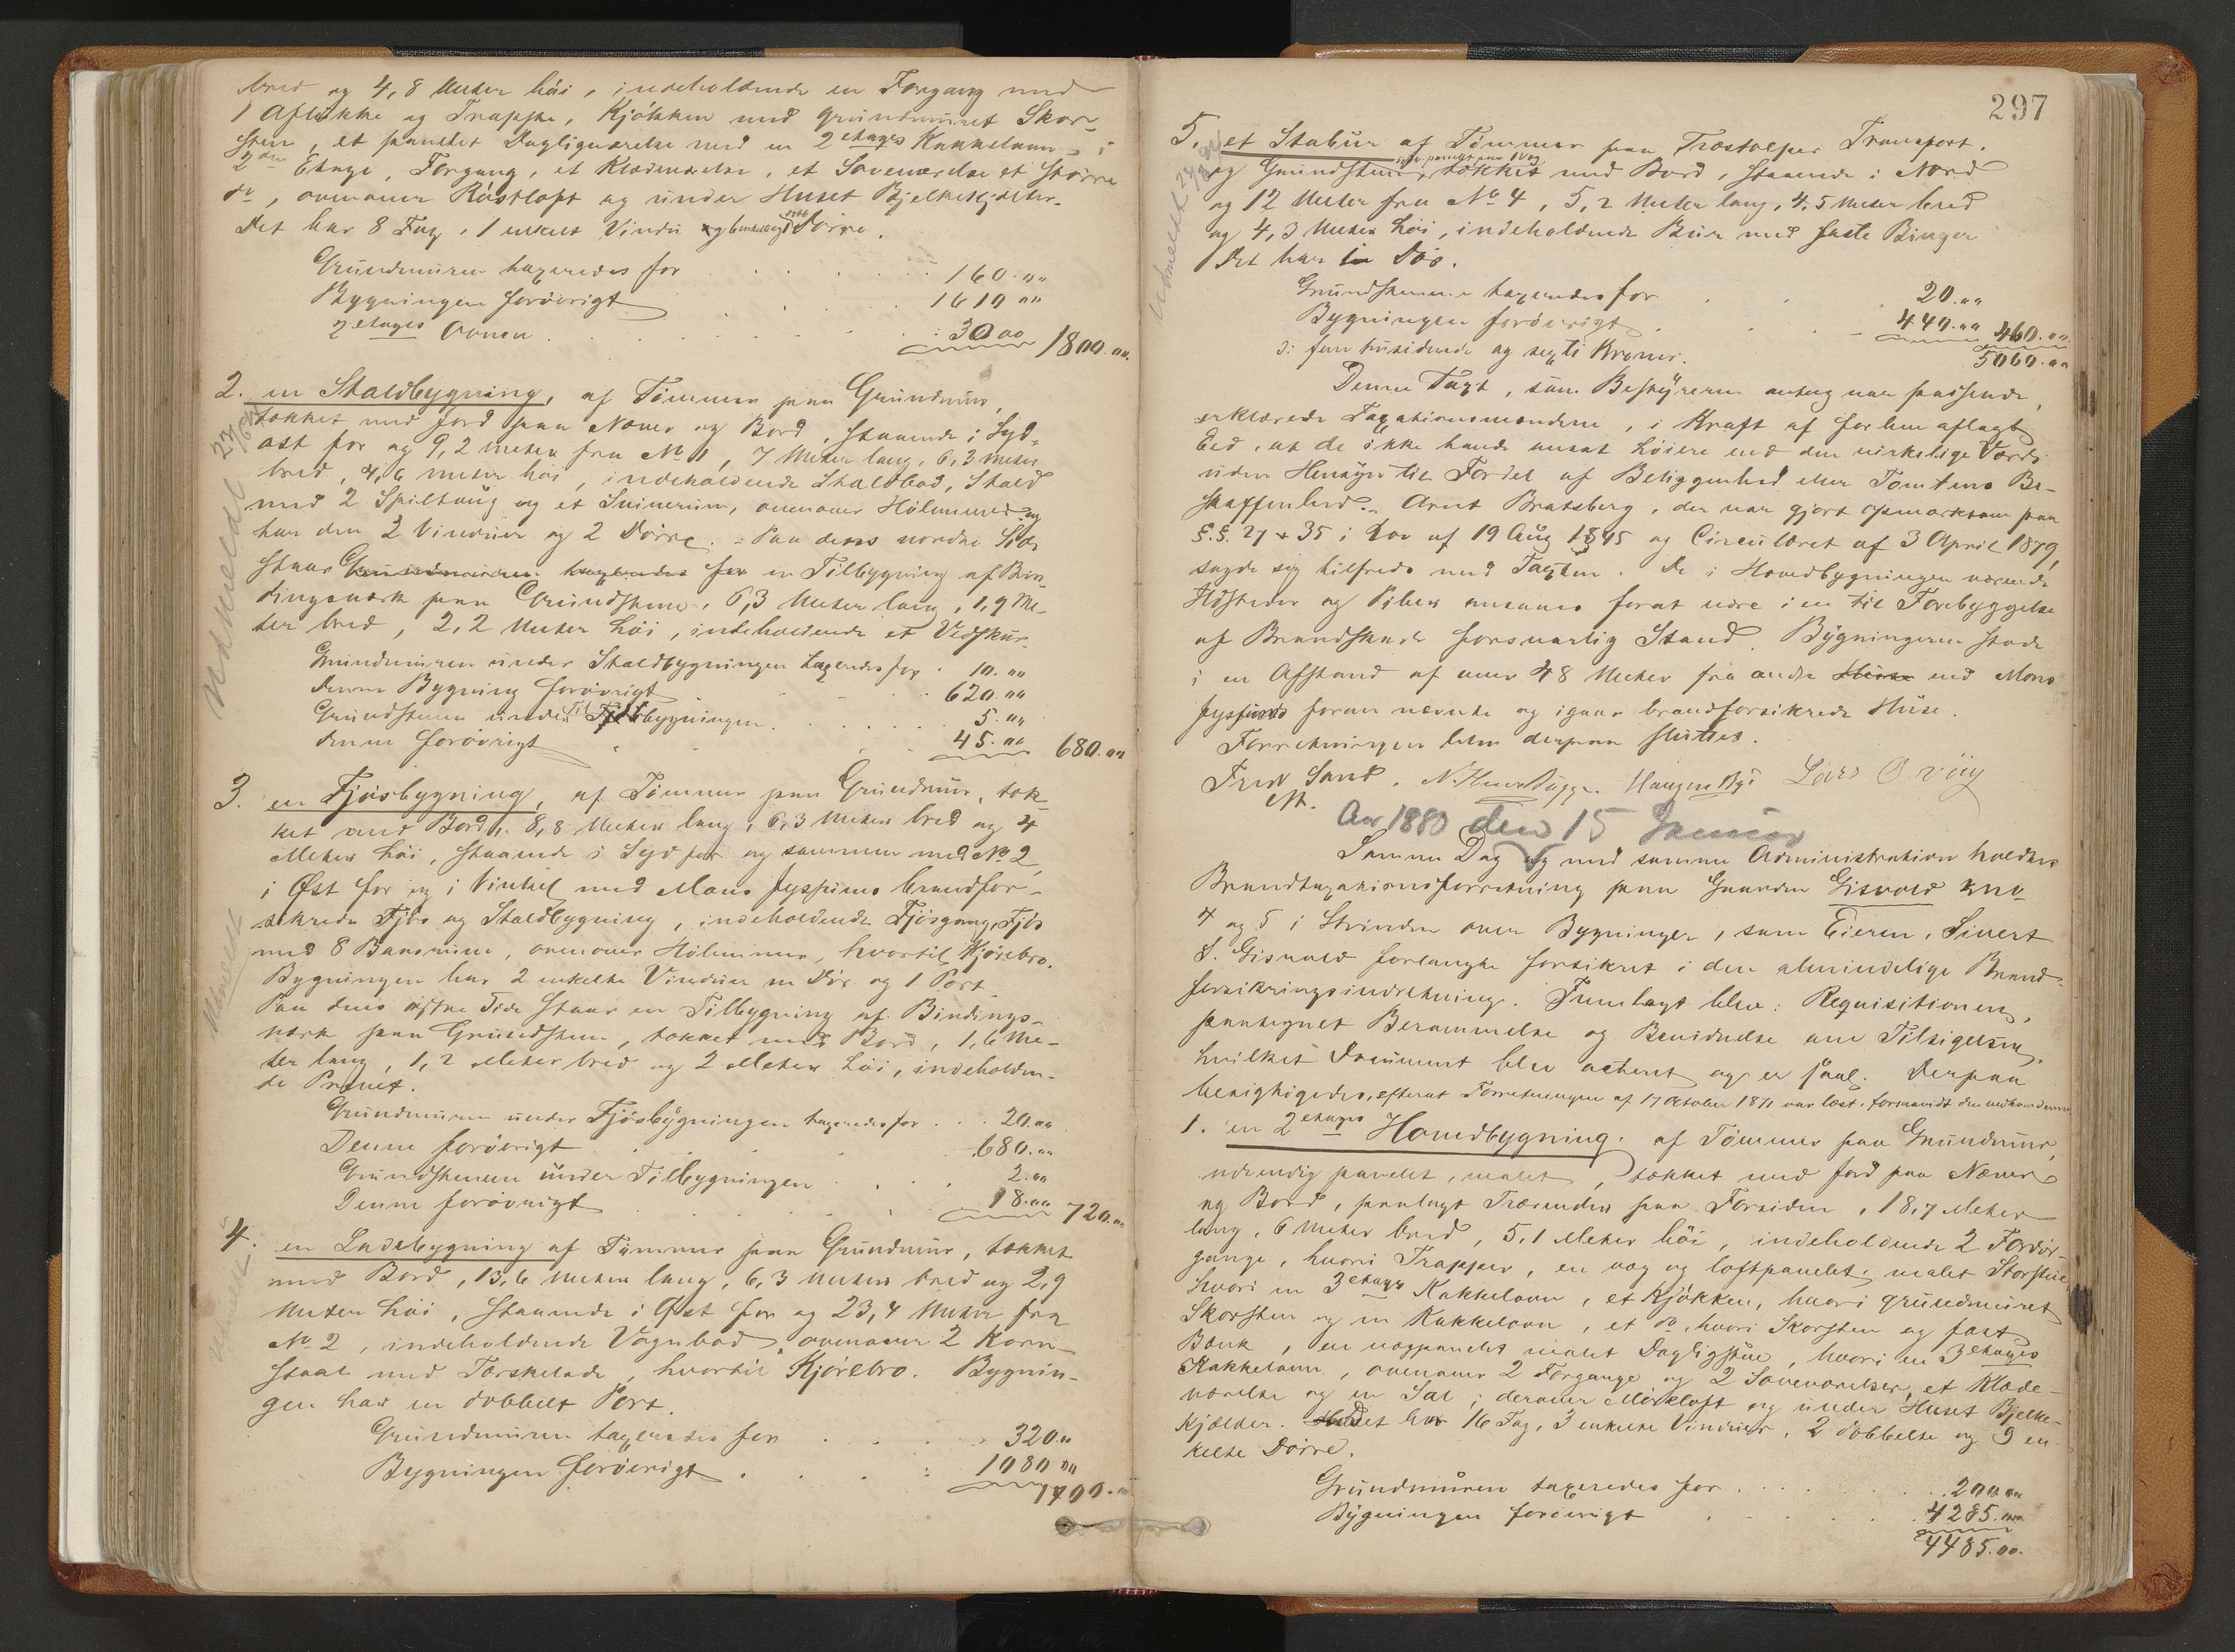 bred og 4,8 Meter høi, indeholdende en Forgang med
1 Aflukke og Trappe, Kjøkken med grundmuret Skor-
sten, et panelet Dagligværelse med en 2 etages Kakkelovn, i
2den Etage, Forgang, et Klædeværelse, et Soveværelse et større
do, ovenover Røstloft og under Huset Bjelkekjelder.
Det har 8 Fag, 1 enkelt Vindu og 6 enkelte Dørre.
Grundmuren taxeredes for 160.00
Bygningen forøvrigt 1610 00
2 etages Ovnen 30 00 1800.00
2. en Staldbygning, af Tømmer paa Grundmur,
tækket med Jord paa Næver og Bord, staaende i Syd-
ost for og 9,2 Meter fra No 1, 7 Meter lang, 6,3 Meter
bred, 4,6 Meter høi, indeholdende Staldbod, Stald
med 2 Spiltaug og et Svinerum, ovenover Hølemmed og
har den 2 Vinduer og 2 Dørre. Paa dens nordre Side
staar Grundmuren taxeredes for en Tilbygning af Bin-
dingsværk paa Grundstene, 6,3 Meter lang, 1,9 Me-
ter bred, 2,2 Meter høi, indeholdende et Vedskur.
Grundmuren under Staldbygningen taxeredes for 10.00
denne Bygning forøvrigt 620.00
Grundstenen under Tilbygningen 5.00
denne forøvrigt 45.00 680.00
Udmeldt
3. en Fjøsbygning, af Tømmer paa Grundmur, tæk-
ket med Bord, 8,8 Meter lang, 6,3 Meter bred og 4
Meter høi, staaende i Syd for og sammen med No 2,
i Øst for og i Vinkel med Mons Jyssums brandfor-
sikrede Fjøs og Staldbygning, indeholdende Fjøsgang, Fjøs
med 8 Baasrum, ovenover Hølemmer, hvortil Kjørebro.
Bygningen har 2 enkelte Vinduer en Dør og 1 Port.
Paa dens østre Side staar en Tilbygning af Bindings-
værk paa Grundstene, tækket med Bord, 1,6 Me-
ter lang, 1,2 Meter bred og 2 Meter høi, indeholden-
de Privet.
Grundmuren under Fjøsbygningen taxeredes for 20.00
Denne forøvrigt 680.00
Grundstenene under Tilbygningen 2.00
Denne forøvrigt 18.00 720.00
Udmeldt
4. en Ladebygning af Tømmer paa Grundmur, tækket
med Bord, 13,6 Meter lang, 6,3 Meter bred og 2,9
Meter høi, staaende i Øst for og 23,4 Meter fra
No 2, indeholdende Vognbod, ovenover 2 Korn-
staal med Tærskelade, hvortil Kjørebro. Bygnin-
gen har en dobbelt Port.
Grundmuren taxeredes for 320.00
Bygningen forøvrigt 1080 00
1400.00
Udmeldt
297
Transport.
5. et Stabur af Tømmer paa Træstolper
og Grundstene, tækket med Bord, staaende i Nord
og 12 Meter fra No 4, 5,2 Meter lang, 4,5 Meter bred
og 4,3 Meter høi, indeholdende Bur med faste Binger
Det har en Dør.
Grundstenene taxeredes for 20.00
Bygningen forøvrigt 440.00 460.00
5060.00
ɔ: fem tusidende og sexti Kroner.
Denne Taxt, som Bestyreren antog var passende,
erklærede Taxationsmændene, i Kraft af for hen aflagt
Eed, at de ikke havde ansat høiere end den virkelige Værdi
uden Hensyn til Fordel af Beliggenhed eller Tomtens Be-
skaffenhed. Arnt Bratsberg, der var gjort opmærksom paa
§.§. 27 + 35 i Lov af 19 Aug 1845 og Circulæret af 3 April 1879,
sagde sig tilfreds med Taxten. De i Hovedbygningen værende
Ildsteder og Piber ansaaes forat være i en til Forebyggelse
af Brandskade forsvarlig Stand. Bygningerne stode
i en Afstand af over 48 Meter fra andre Huse end Mons
Jyssums foran nævnte og igaar brandforsikrede Huse.
Forretningen blev derpaa sluttet.
Fredr Sand. Lars Ovøiy
Aar 1880 den 15 Januar
Samme Dag og med samme Administration holdtes
Brandtaxationsforretning paa Gaarden Gisvold
4 og 5 i Strinden over Bygninger, som Eieren, Sivert
S. Gisvold forlangte forsikret i den almindelige Brand-
forsikringsindretning. Fremlagt blev: Requisitionen,
paategnet Berammelse og Bevidnelse om Tilsigelsen,
hvilket Document blev acteret og er saal. Derpaa
besigtigedes, efterat Forretningen af 17 October 1871 var læst, foranvidt den vedkom denne
1. en 2 etages Hovedbygning, af Tømmer paa Grundmur,
udvendig panelet, malet, tækket med Jord paa Næver
og Bord, paalagt Trærender paa Forsiden, 18,7 Meter
lang, 6 Meter bred, 5,1 Meter høi, indeholdende 2 Fordør-
gange, hvori Trapper, en væg og loftpanelet, malet Storstue,
hvori en 3 etages Kakkelovn, et Kjøkken, hvori grundmuret
Skorsten og en Kakkelovn, et do, hvori Skorsten og fast
Bænk, en vægpanelet malet Dagligstue, hvori en 3 etages
Kakkelovn, ovenover 2 Forgange og 2 Soveværelser, et Klæde-
værelse og en Sal; derover Mørkloft og under Huset Bjelke-
kjælder. Det har 16 Fag, 3 enkelte Vinduer, 2 dobbelte og 9 en-
kelte Dørre.
Grundmuren taxeredes for 200.00
Bygningen forøvrigt 4285.00
4485.00.